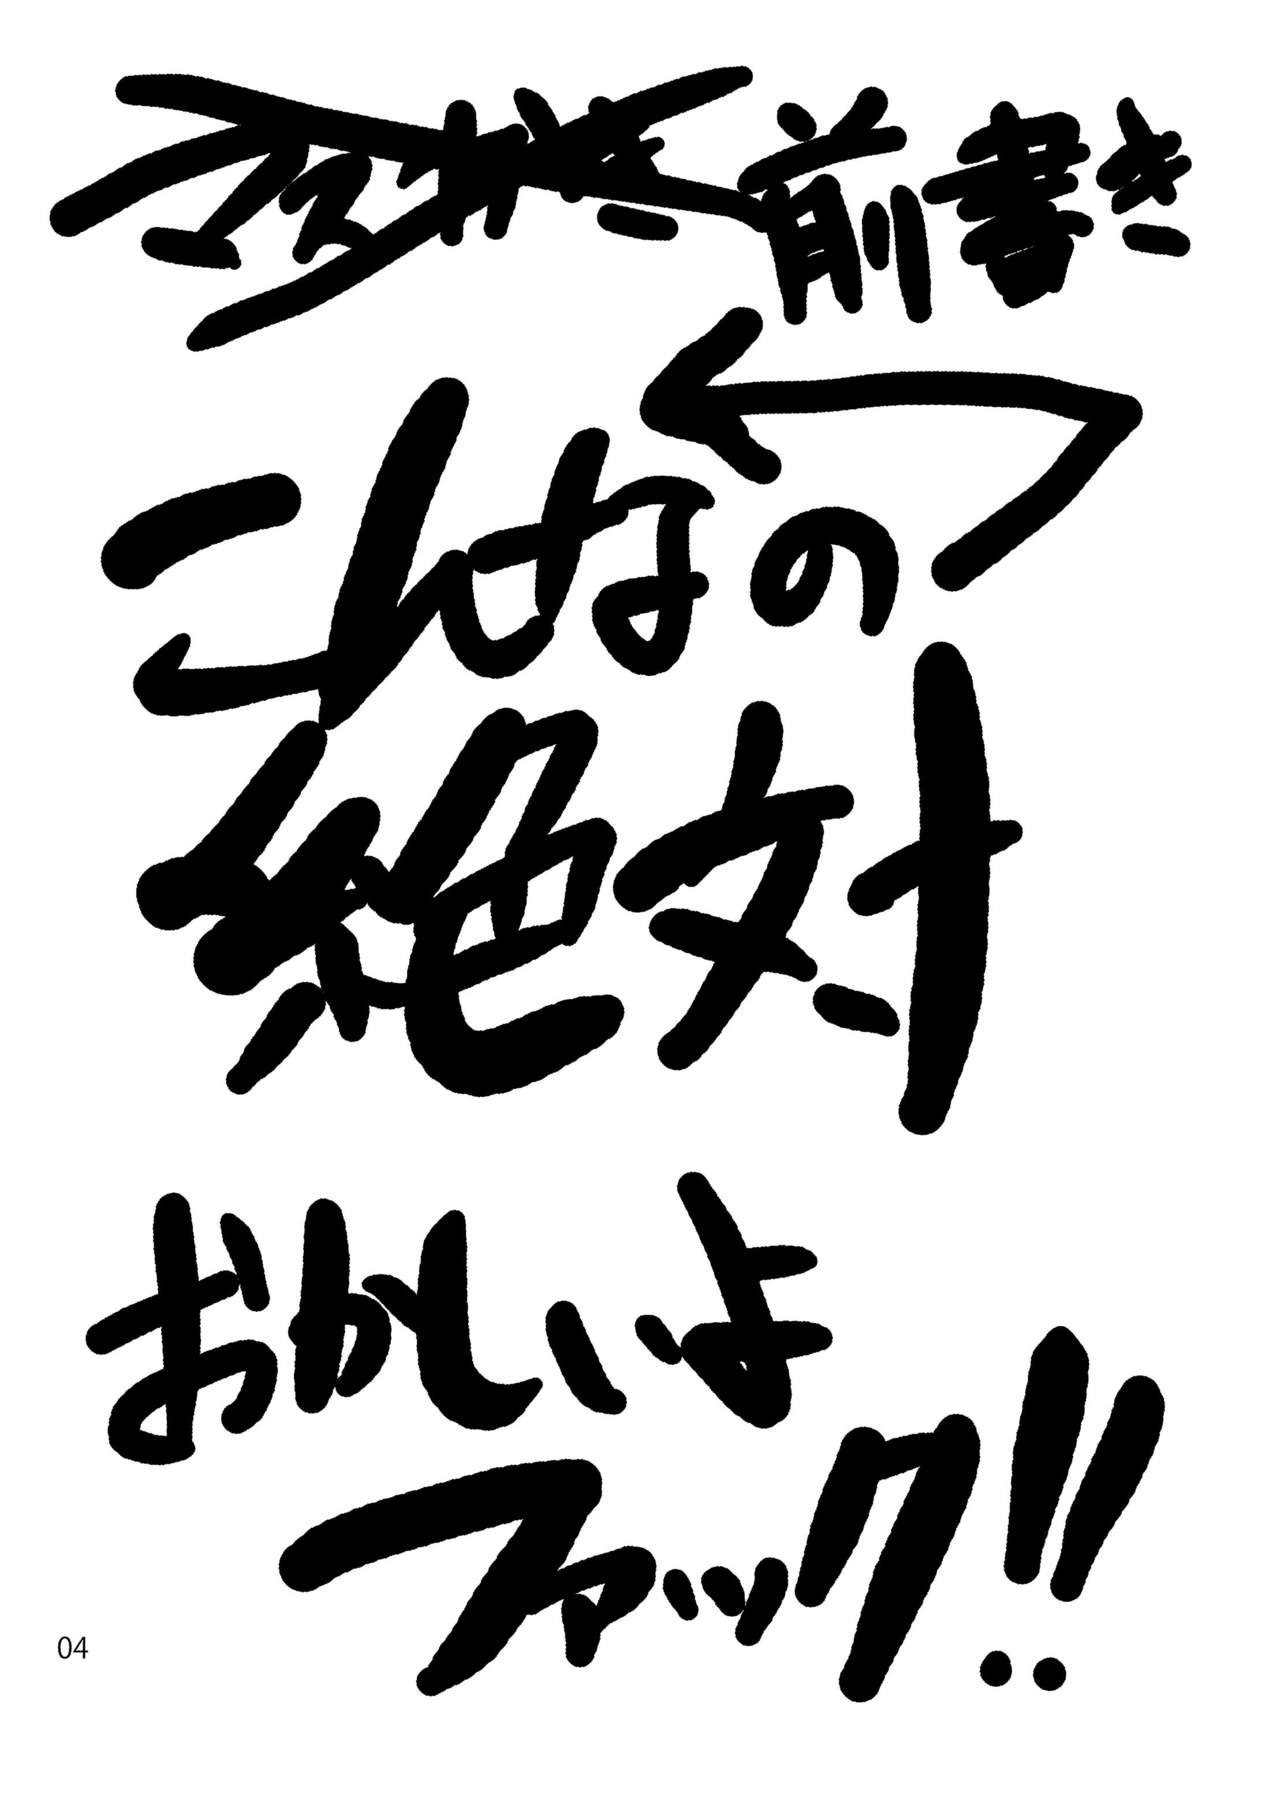 前書き
こんなの
絶対
おかしいよ
ファック!!
04